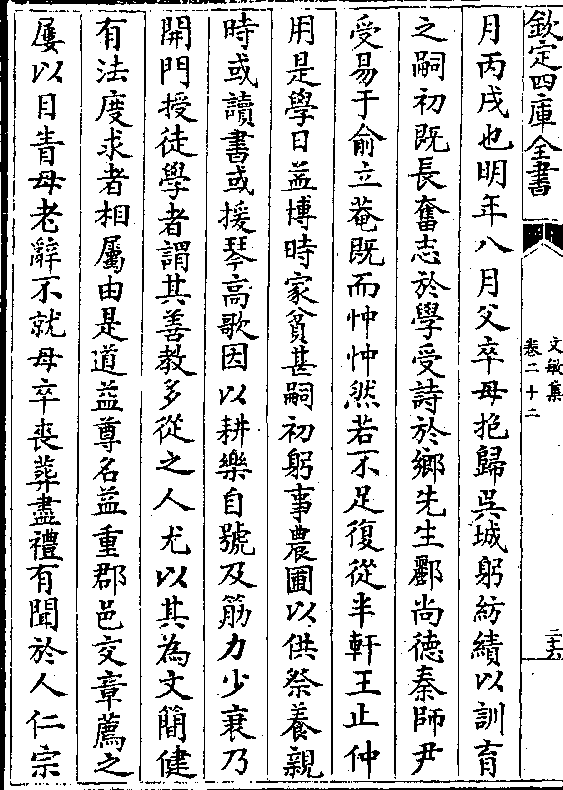 欽定四庫全書
文敏集
卷二十二
月丙戌也明年八月父卒母抱歸吳城躬紡績以訓育
之嗣初既長奮志於學受詩於鄉先生酈尚德秦師尹
受易于俞立菴既而忡忡然若不足復從半軒王止仲
用是學日益博時家貧甚嗣初躬事農圃以供祭養親
時或讀書或援琴高歌因以耕樂自號及筋力少衰乃
開門授徒學者謂其善教多從之人尤以其為文簡健
有法度求者相屬由是道益尊名益重郡邑交章薦之
屢以目眚母老辭不就母卒喪葬盡禮有聞於人仁宗